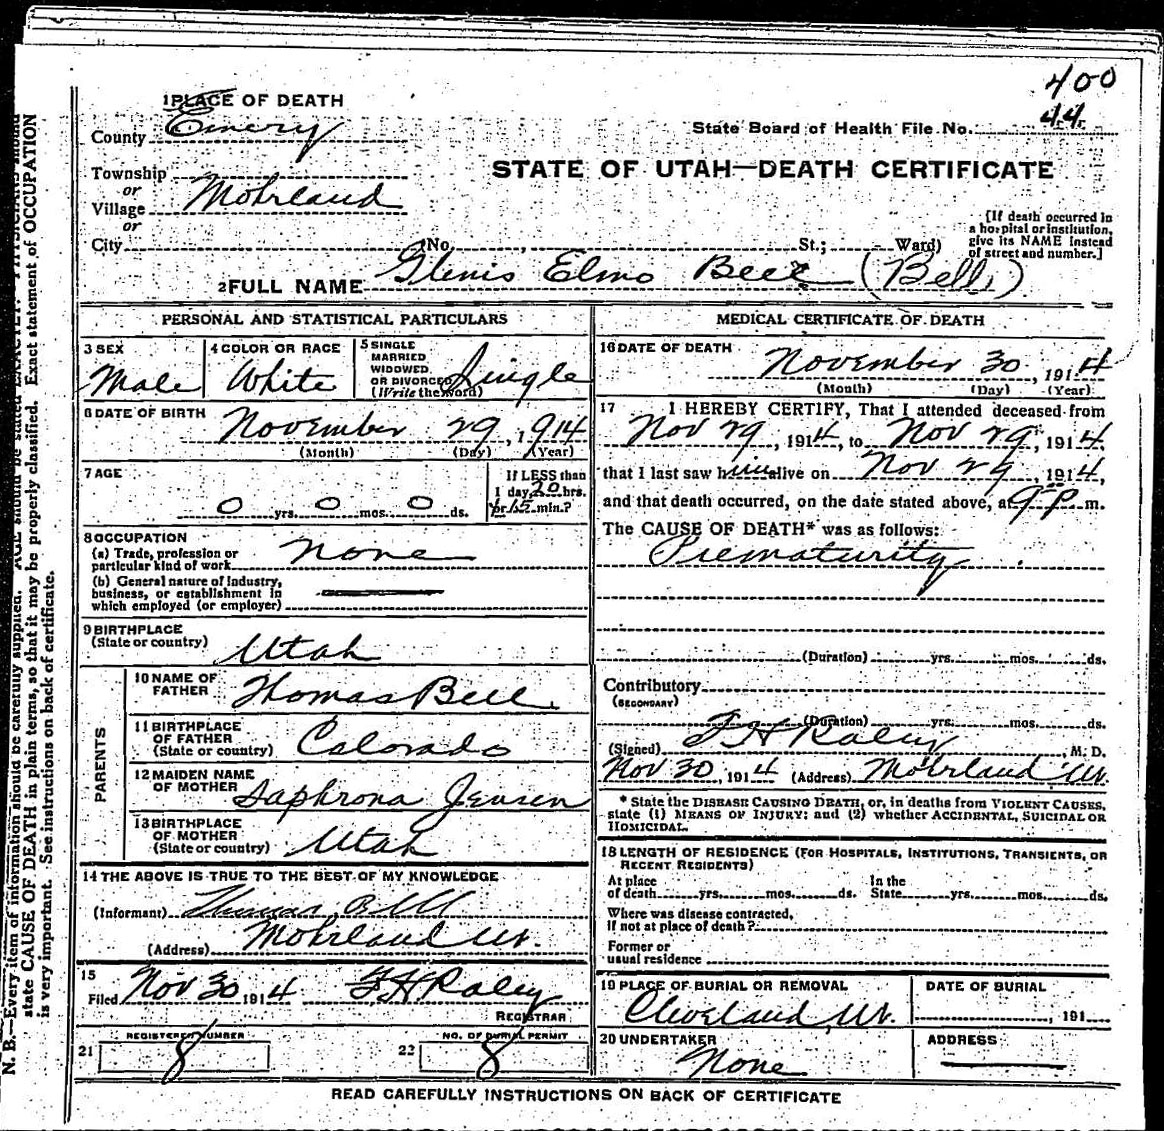 400
44
1 PLACE OF DEATH
County Emery
State Board of Health File No.
STATE OF UTAH—DEATH CERTIFICATE
Township
or
Village Mohrland
or
City (No. , St.; Ward)
[If death occurred in
a hospital or institution,
give its NAME instead
of street and number.]
2 FULL NAME Glenis Elmo Bell (Bell)
PERSONAL AND STATISTICAL PARTICULARS
3 SEX
Male
4 COLOR OR RACE
White
5 SINGLE
MARRIED
WIDOWED
OR DIVORCED
(Write the word)
Single
6 DATE OF BIRTH
November 29, 1914
(Month) (Day) (Year)
7 AGE
0 yrs. 0 mos. 0 ds.
If LESS than
1 day, 20 hrs.
or 15 min.?
8 OCCUPATION
(a) Trade, profession or
particular kind of work None
(b) General nature of Industry,
business, or establishment in
which employed (or employer)
9 BIRTHPLACE
(State or country) Utah
PARENTS
10 NAME OF
FATHER Thomas Bell
11 BIRTHPLACE
OF FATHER
(State or country) Colorado
12 MAIDEN NAME
OF MOTHER Saphrona Jensen
13 BIRTHPLACE
OF MOTHER
(State or country) Utah
14 THE ABOVE IS TRUE TO THE BEST OF MY KNOWLEDGE
(Informant) Thomas Bell
(Address) Mohrland Ut.
15
Filed Nov 30 1914 F H Raley
REGISTRAR
21 REGISTERED NUMBER
8
22 NO. OF BURIAL PERMIT
8
MEDICAL CERTIFICATE OF DEATH
16 DATE OF DEATH
November 30, 1914
(Month) (Day) (Year)
17 I HEREBY CERTIFY, That I attended deceased from
Nov 29, 1914, to Nov 29, 1914,
that I last saw him alive on Nov 29, 1914,
and that death occurred, on the date stated above, at 9 P m.
The CAUSE OF DEATH* was as follows:
Prematurity
(Duration) yrs. mos. ds.
Contributory
(SECONDARY)
(Duration) yrs. mos. ds.
(Signed) F H Raley, M. D.
Nov 30, 1914 (Address) Mohrland Ut.
* State the DISEASE CAUSING DEATH, or, in deaths from VIOLENT CAUSES,
state (1) MEANS OF INJURY; and (2) whether ACCIDENTAL, SUICIDAL OR
HOMICIDAL.
18 LENGTH OF RESIDENCE (FOR HOSPITALS, INSTITUTIONS, TRANSIENTS, OR
RECENT RESIDENTS)
At place
of death yrs. mos. ds.
In the
State yrs. mos. ds.
Where was disease contracted,
if not at place of death?
Former or
usual residence
19 PLACE OF BURIAL OR REMOVAL
Cleveland, Ut.
DATE OF BURIAL
, 191
20 UNDERTAKER
None
ADDRESS
READ CAREFULLY INSTRUCTIONS ON BACK OF CERTIFICATE
N. B.—Every item of information should be carefully supplied. AGE should be stated EXACTLY. PHYSICIANS should
state CAUSE OF DEATH in plain terms, so that it may be properly classified. Exact statement of OCCUPATION
is very important. See instructions on back of certificate.